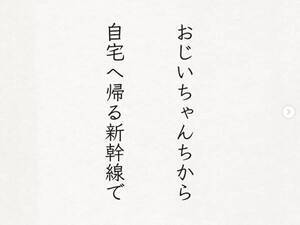 おじいちゃんちから
自宅へ帰る新幹線で